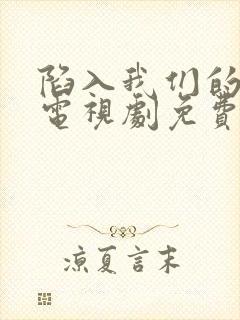 陷入我们的
電視劇免費
涼夏言末